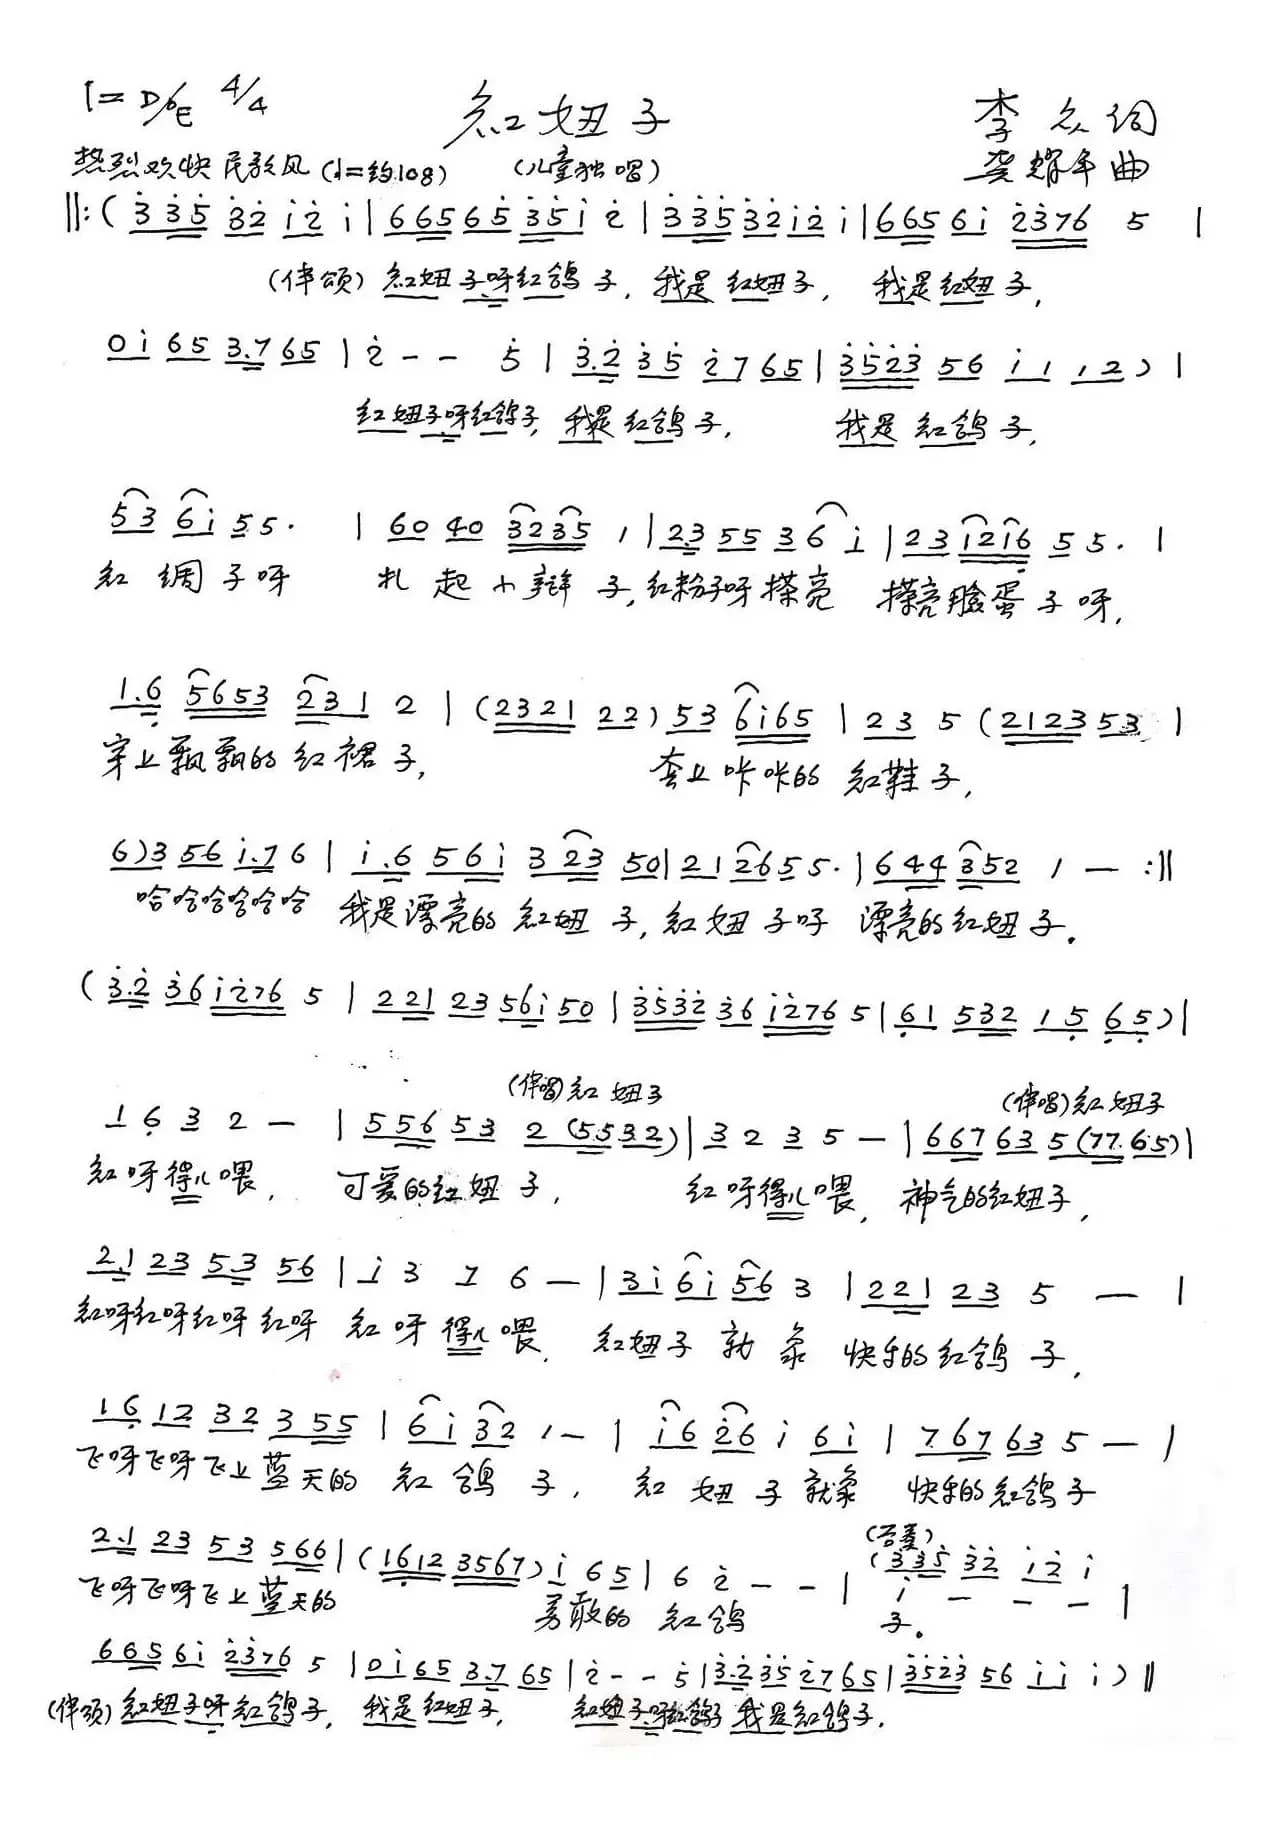 1=D/bE 4/4 红妞子 李众词
热烈欢快 民歌风 (♩=约108) (儿童独唱) 龚耀年曲
‖:(3̇3̇5̇ 3̇2̇ i2̇ i|66565̇ 3̇5̇i 2̇|3̇3̇5̇3̇2̇i2̇i|6656i 2̇3̇76 5 |
(伴颂) 红妞子呀红鸽子, 我是红妞子, 我是红妞子,
0i 65 3.765|2̇-- 5̇|3̇.2̇ 3̇5̇ 2̇765|3̇5̇2̇3̇ 56 i11 12)|
红妞子呀红鸽子, 我是红鸽子, 我是红鸽子,
53 6i 55. |60 40 3235 1|2.3 55 36 i|23 1216 55. |
红绸子呀 扎起小辫子,红粉子呀搽亮 搽亮脸蛋子呀,
1.6 5653 231 2|(2321 22)53 6i65|23 5(212353|
穿上飘飘的红裙子, 套上咔咔的红鞋子,
6)3 56 i.76|i.6 56i 323 50|21 2655.|644 352 1—:‖
哈哈哈哈哈哈 我是漂亮的红妞子,红妞子呀 漂亮的红妞子。
(3̇.2̇ 3̇6i2̇76 5|221 2356i50|3̇5̇3̇2̇ 3̇6 i2̇76 5|61 532 15 65)|
(伴唱)红妞子 (伴唱)红妞子
1632—|556 53 2(5532)|3235—|66763 5(77.65)|
红呀得儿喂, 可爱的红妞子, 红呀得儿喂, 神气的红妞子,
2.1 23 5.3 56|i316—|3i6i563|221 23 5—|
红呀红呀红呀红呀 红呀得儿喂, 红妞子就象 快乐的红鸽子,
16 12 32 355|6i32 1-|i62̇6i6i|76763 5—|
飞呀飞呀飞上蓝天的 红鸽子, 红妞子就象 快乐的红鸽子
2.1 23 53 566|(1612 3567)i65|62̇--|(3̇3̇5̇ 3̇2̇ i2̇ i
i---|
飞呀飞呀飞上蓝天的 勇敢的红鸽 子。
6656i 2̇3̇76 5|0i65 3.765|2̇--5̇|3̇.2̇3̇5̇2̇765|3̇5̇2̇3̇ 56iii)‖
(伴颂)红妞子呀红鸽子, 我是红妞子, 红妞子呀红鸽子我是红鸽子.